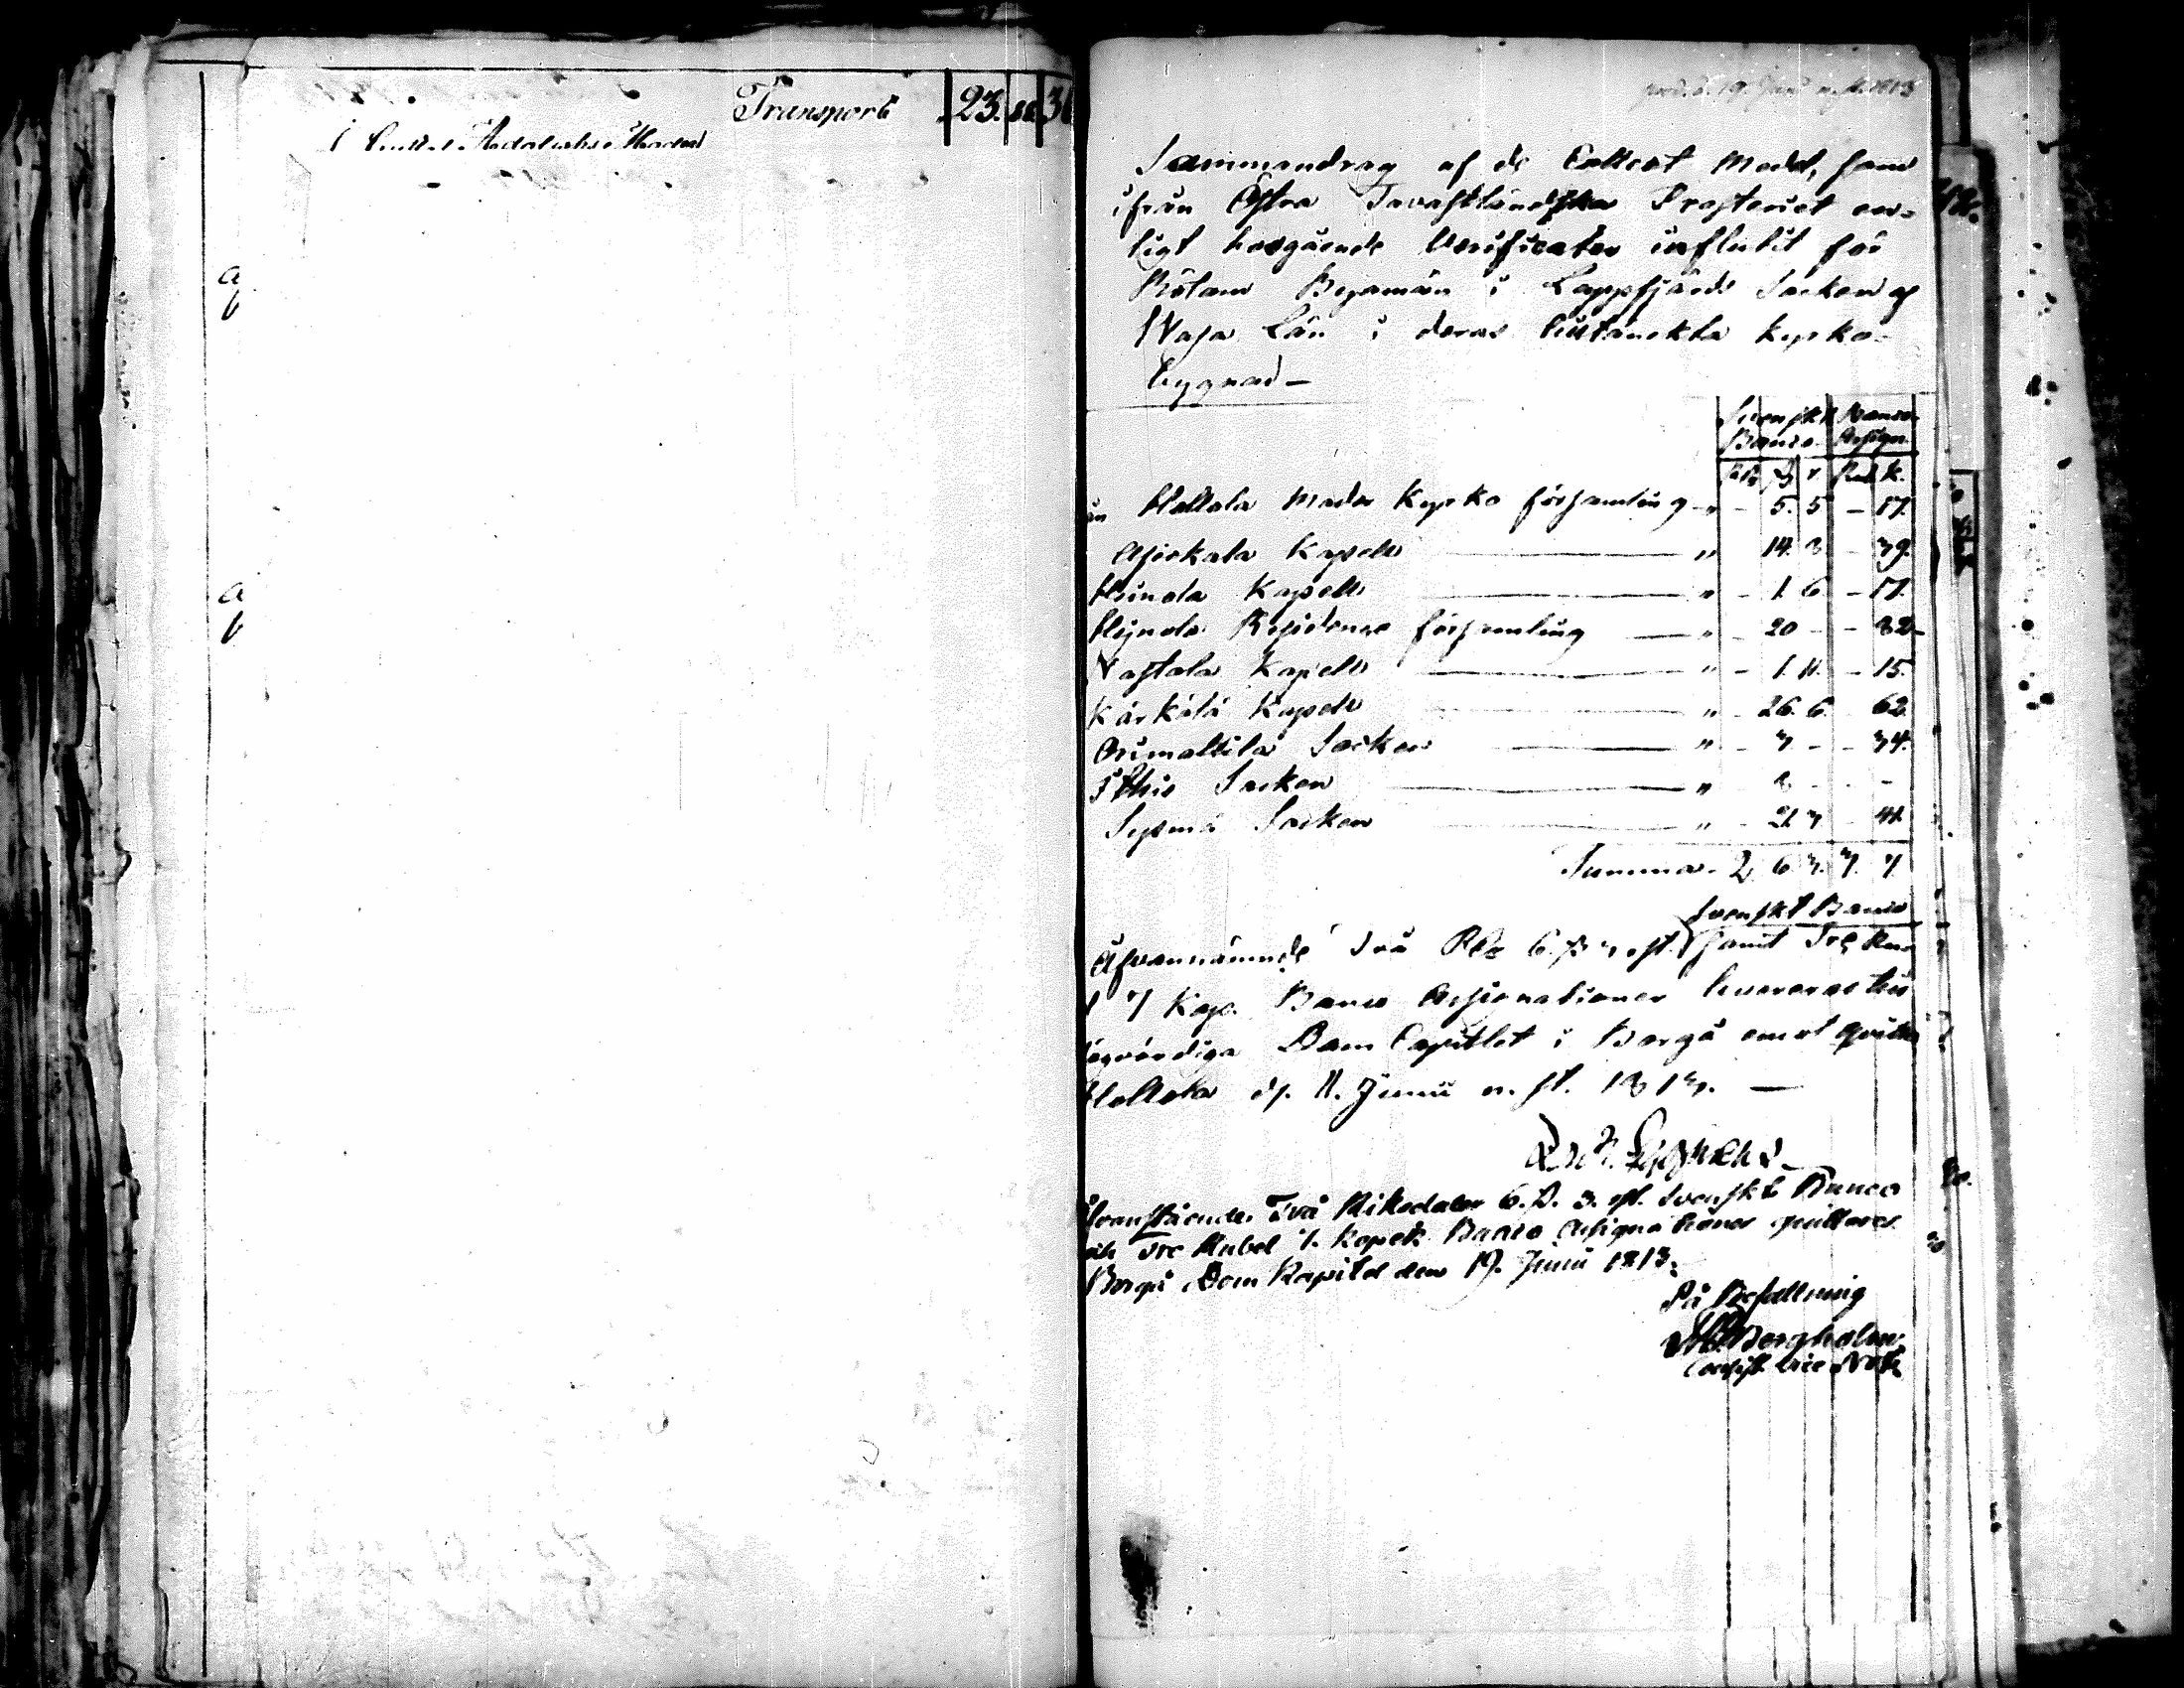 Transport 23. 36
a
a
prod. d. 19 Junii 1813
Sammandrag af de Collect Medel, som
ifrån Östra Tavastländska Prosteriet en-
ligt hosgående Verificater influtit för
Bötom Byamän i Lappfjärds Socken af
Wasa Län i deras tilltänckta kyrko-
bygnad –
Svenskt Banco
Banco. Assign.
Rd. ß r. Rub. K.
Hollola Moder Kyrko församling " – 5. 5 – 17.
Asickala Kapell " 14. 3 – 39.
Heinola Kapell " – 1. 6 – 17.
Heinola Residence församling " – 20 – – 32–
Nastola Kapell " – 1. 11. – 15.
Kärkölä Kapell " – 26. 6 – 62.
Orimattila Socken " – 3 – – 34.
Itthis Socken "
Sysmä Socken " – 21. 3 – 41.
Summa. 2 6 3. 3. 7
Svenskt Banco
Ofvannämnde Två Rd 6 ß 3 rst. samt Tre Ru-
7 Kop. Banco Assignationer levereras till
Högvördiga Dom Capitlet i Borgå emot qvitto
Hollola d. 11. Junii n. st. 1813. –
Ofvanstående Två Riksdaler 6. ß. 3. rst. Svenskt Banco
och Tre Rubel 7. Kopek Banco Assignationer qvitteras
Borgå Dom Kapitel den 19. Junii 1813.
På Befallning
Bergholm
Consist. Vice Not.